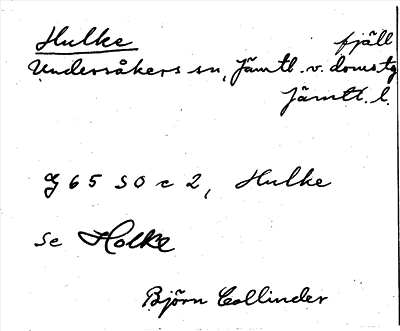 Hulke fjäll
Undersåkers sn, Jämtl. v. doms tg
Jämtl. l.
G 65 SO c 2, Hulke
se Holke
Björn Collinder